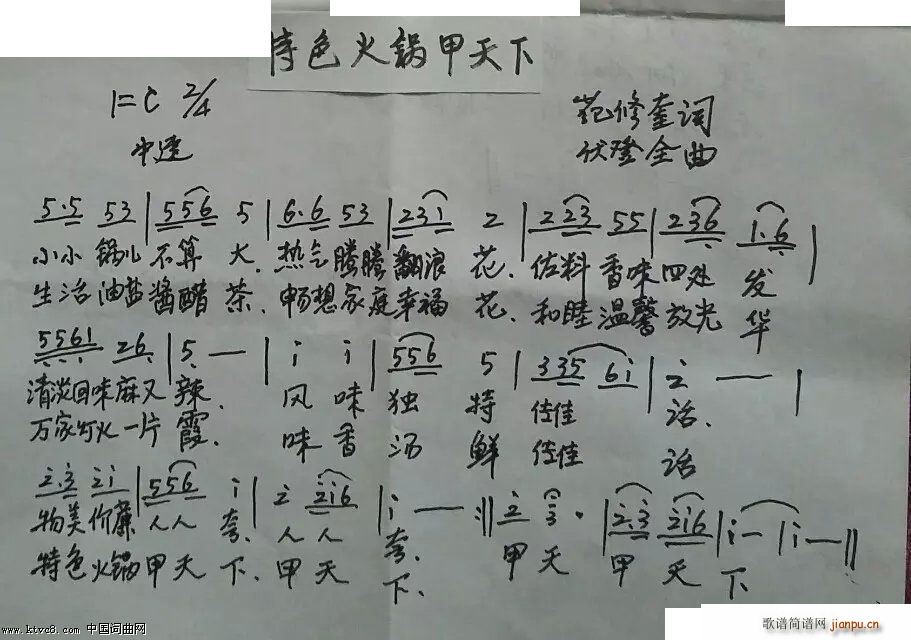 特色火锅甲天下
1=C 2/4
范修奎词
中速
伏登全曲
5·5 53 | 556 5 | 6·6 53 | 231 2 | 223 55 | 236 1·6 |
小小锅儿不算大.热气腾腾翻浪花.佐料香味四处发
生活油盐酱醋茶.畅想家庭幸福花.和睦温馨放光华
5561 26 | 5 — | i i | 556 5 | 335 6i | 2 — |
清淡回味麻又辣.风味独特佳佳话.
万家灯火一片霞.味香汤鲜佳佳话
2·3 2i | 556 i | 2 2i6 | i — :|| 2 3· | 2·3 2i6 | i — | i — ||
物美价廉人人夸.人人夸.甲天甲天下
特色火锅甲天下.甲天下.
www.ktvc8.com 中国词曲网
歌谱简谱网
jianpu.cn